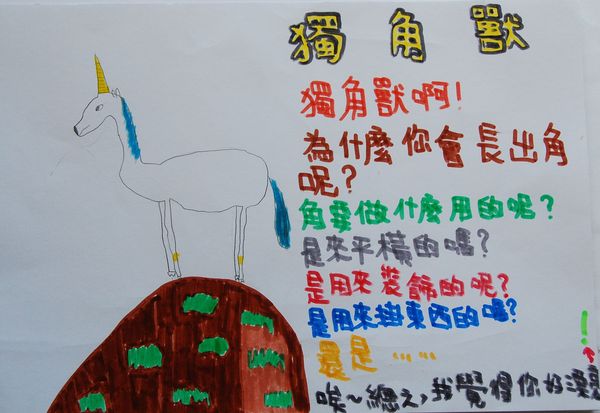 獨角獸
獨角獸啊!
為什麼你會長出角
呢?
角要做什麼用的呢?
是來平橫的嗎?
是用來裝飾的呢?
是用來掛東西的嗎?
還是……
唉~總之,我覺得你好漂亮
!